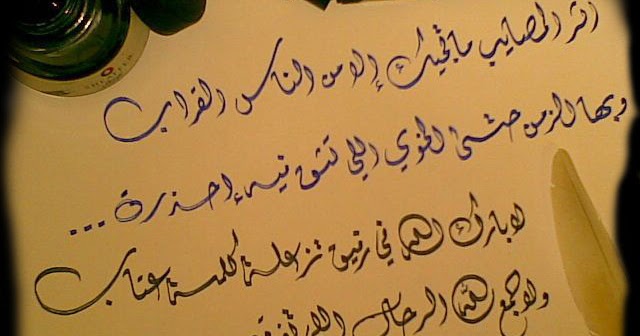 اثر المصايب ماتجيك إلا من الناس القراب
وبها الزمن حتى الخوي اللي تثق فيه إحذره ...
لا بارك الله في رفيق تزعله كلمة عتاب
ولا جمع الله الرجال